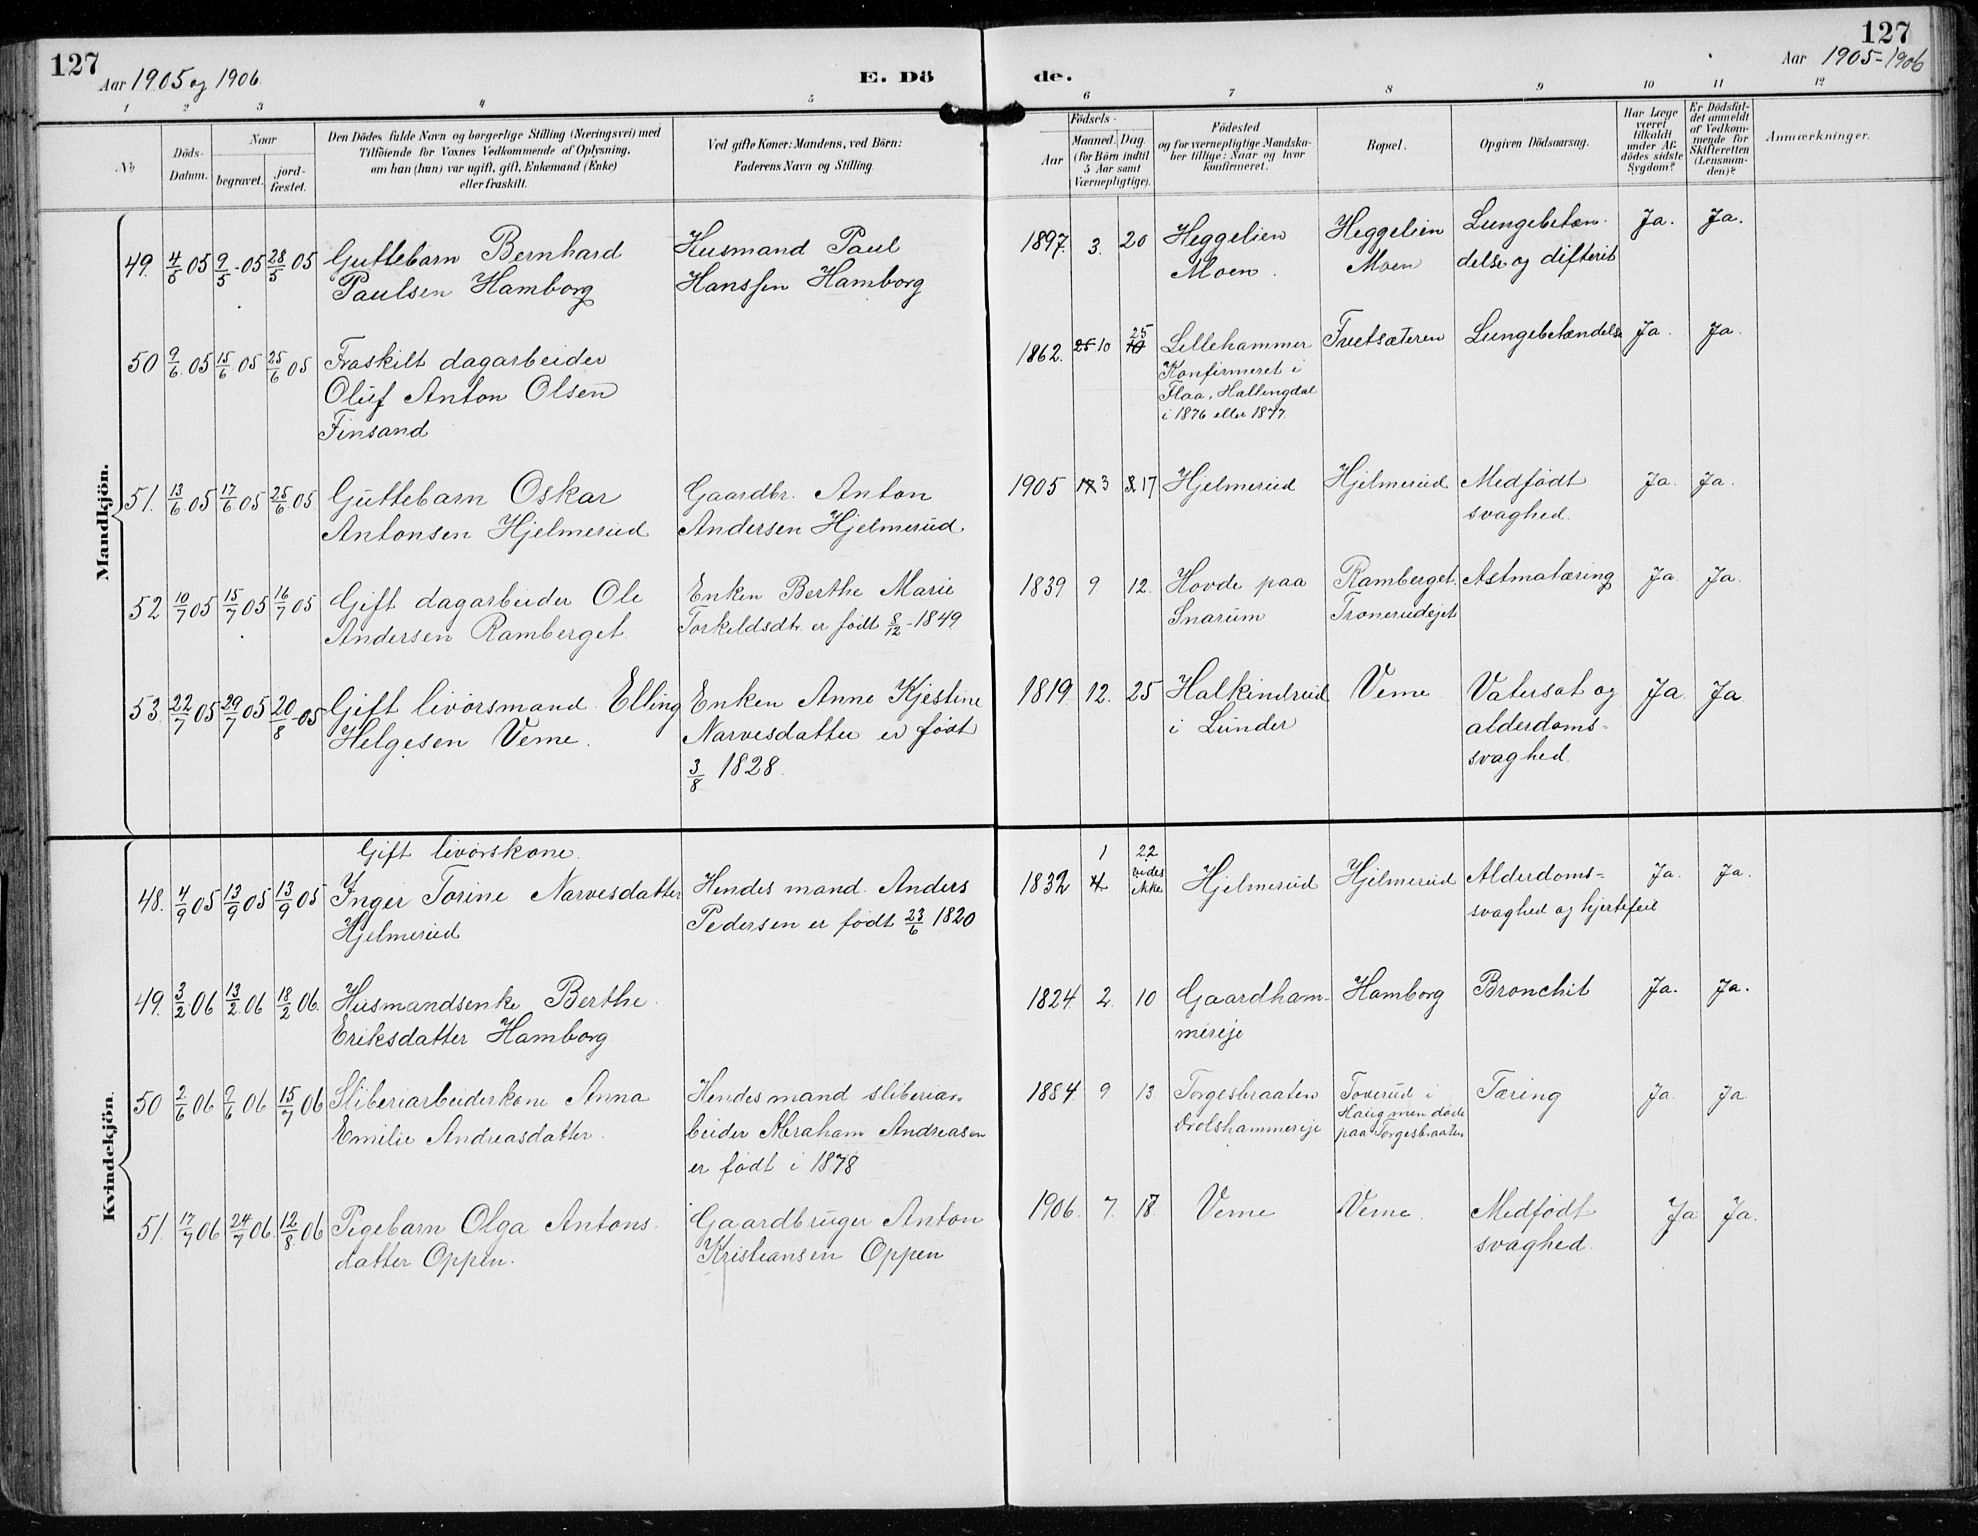 127
Aar 1905 og 1906
E. Dö
de.
127
Aar 1905-1906
1 2 3 4 5 6 7 8 9 10 11 12
No
Döds-Datum.
Naar
begravet.
jord-fæstet.
Den Dödes fulde Navn og borgerlige Stilling (Næringsvei) med
Tilföiende for Voxnes Vedkommende af Oplysning,
om han (hun) var ugift, gift, Enkemand (Enke)
eller fraskilt.
Ved gifte Koner: Mandens, ved Börn:
Faderens Navn og Stilling.
Födsels-
Aar
Maaned. Dag.
(for Börn indtil
5 Aar samt
Værnepligtige).
Födested
og for værnepligtige Mandska-
ber tillige: Naar og hvor
konfirmeret.
Bopæl.
Opgiven Dödsaarsag.
Har Læge
været
tilkaldt
under Af-
dödes sidste
Sygdom?
Er Dödsfal-
det anmeldt
af Vedkom-
mende for
Skifteretten
(Lensman-
den)?
Anmærkninger.
Mandkjön.
49. 4/5 05 9/5-05 28/5 05 Guttebarn Bernhard
Paulsen Hamborg
Husmand Paul
Hanssen Hamborg
1897. 3. 20 Heggelien
Moen.
Heggelien
Moen
Lungebetæn-
delse og difterit
Ja. Ja.
50 9/6 05 15/6 05 25/6 05 Fraskilt dagarbeider
Oluf Anton Olsen
Finsand
1862. 25 10 25 10 Lillehammer
Konfirmeret i
Flaa, Hallingdal
i 1876 eller 1877.
Tvetsæteren Lungebetændelse Ja. Ja.
51. 13/6 05 17/6 05 25/6 05 Guttebarn Oskar
Antonsen Hjelmerud
Gaardbr. Anton
Andersen Hjelmerud.
1905 17 3 3 17 Hjelmerud Hjelmerud Medfødt
svaghed.
Ja. Ja.
52 10/7 05 15/7 05 16/7 05 Gift dagarbeider Ole
Andersen Ramberget.
Enken Berthe Marie
Torkeldsdtr. er født 8/12-1849
1839 9. 12. Hovde paa
Snarum
Ramberget.
Tronerudejet
Astmatæring Ja. Ja.
53. 22/7 05 29/7 05 20/8-05 Gift livørsmand Elling
Helgesen Veme.
Enken Anne Kjestine
Narvesdatter er født
3/8 1828.
1819. 12. 25 Halkindrud
i Lunder
Veme Vatersot og
alderdoms-
svaghed.
Ja. Ja
Kvindekjön.
Gift livørskone.
48. 4/9 05 13/9 05 13/9 05 Inger Torine Narvesdatter
Hjelmerud
Hendes mand Anders
Pedersen er født 23/6 1820
1832 1 4 22 vides
ikke
Hjelmerud Hjelmerud Alderdoms-
svaghed og hjertefeil
Ja. Ja.
49. 3/2 06 13/2 06 18/2 06. Husmandsenke Berthe
Eriksdatter Hamborg
1824. 2. 10 Gaardham-
mereje
Hamborg Bronchit Ja. Ja.
50 2/6 06 9/6 06 15/7 06 Sliberiarbeiderkone Anna
Emilie Andreasdatter.
Hendes mand sliberiar-
beider Abraham Andreasen
er født i 1878
1884 9. 13. Torgesbraaten
Drolshammereje
Toverud i
Haug men døde
paa Torgesbraaten
Tæring Ja. Ja
51. 17/7 06 24/7 06. 12/8 06 Pigebarn Olga Antons-
datter Oppen.
Gaardbruger Anton
Kristiansen Oppen
1906. 7. 18. Veme Veme. Medfødt
svaghed.
Ja Ja.